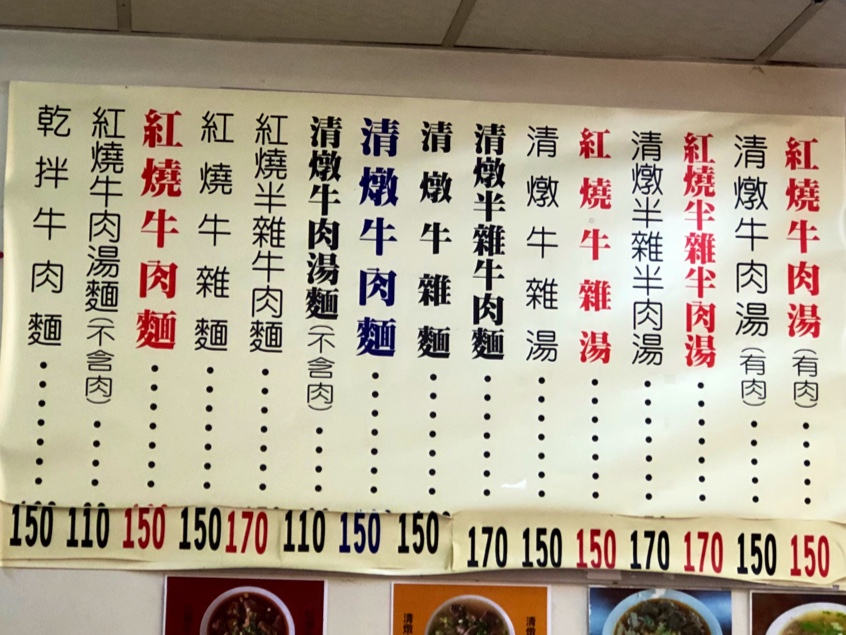 紅燒牛肉湯(有肉)........150
清燉牛肉湯(有肉)........150
紅燒半雜半肉湯........170
清燉半雜半肉湯........170
紅燒牛雜湯........150
清燉牛雜湯........150
清燉半雜牛肉麵........170
清燉牛雜麵........150
清燉牛肉麵........150
清燉牛肉湯麵(不含肉)........110
紅燒半雜牛肉麵........170
紅燒牛雜麵........150
紅燒牛肉麵........150
紅燒牛肉湯麵(不含肉)........110
乾拌牛肉麵........150
清燉